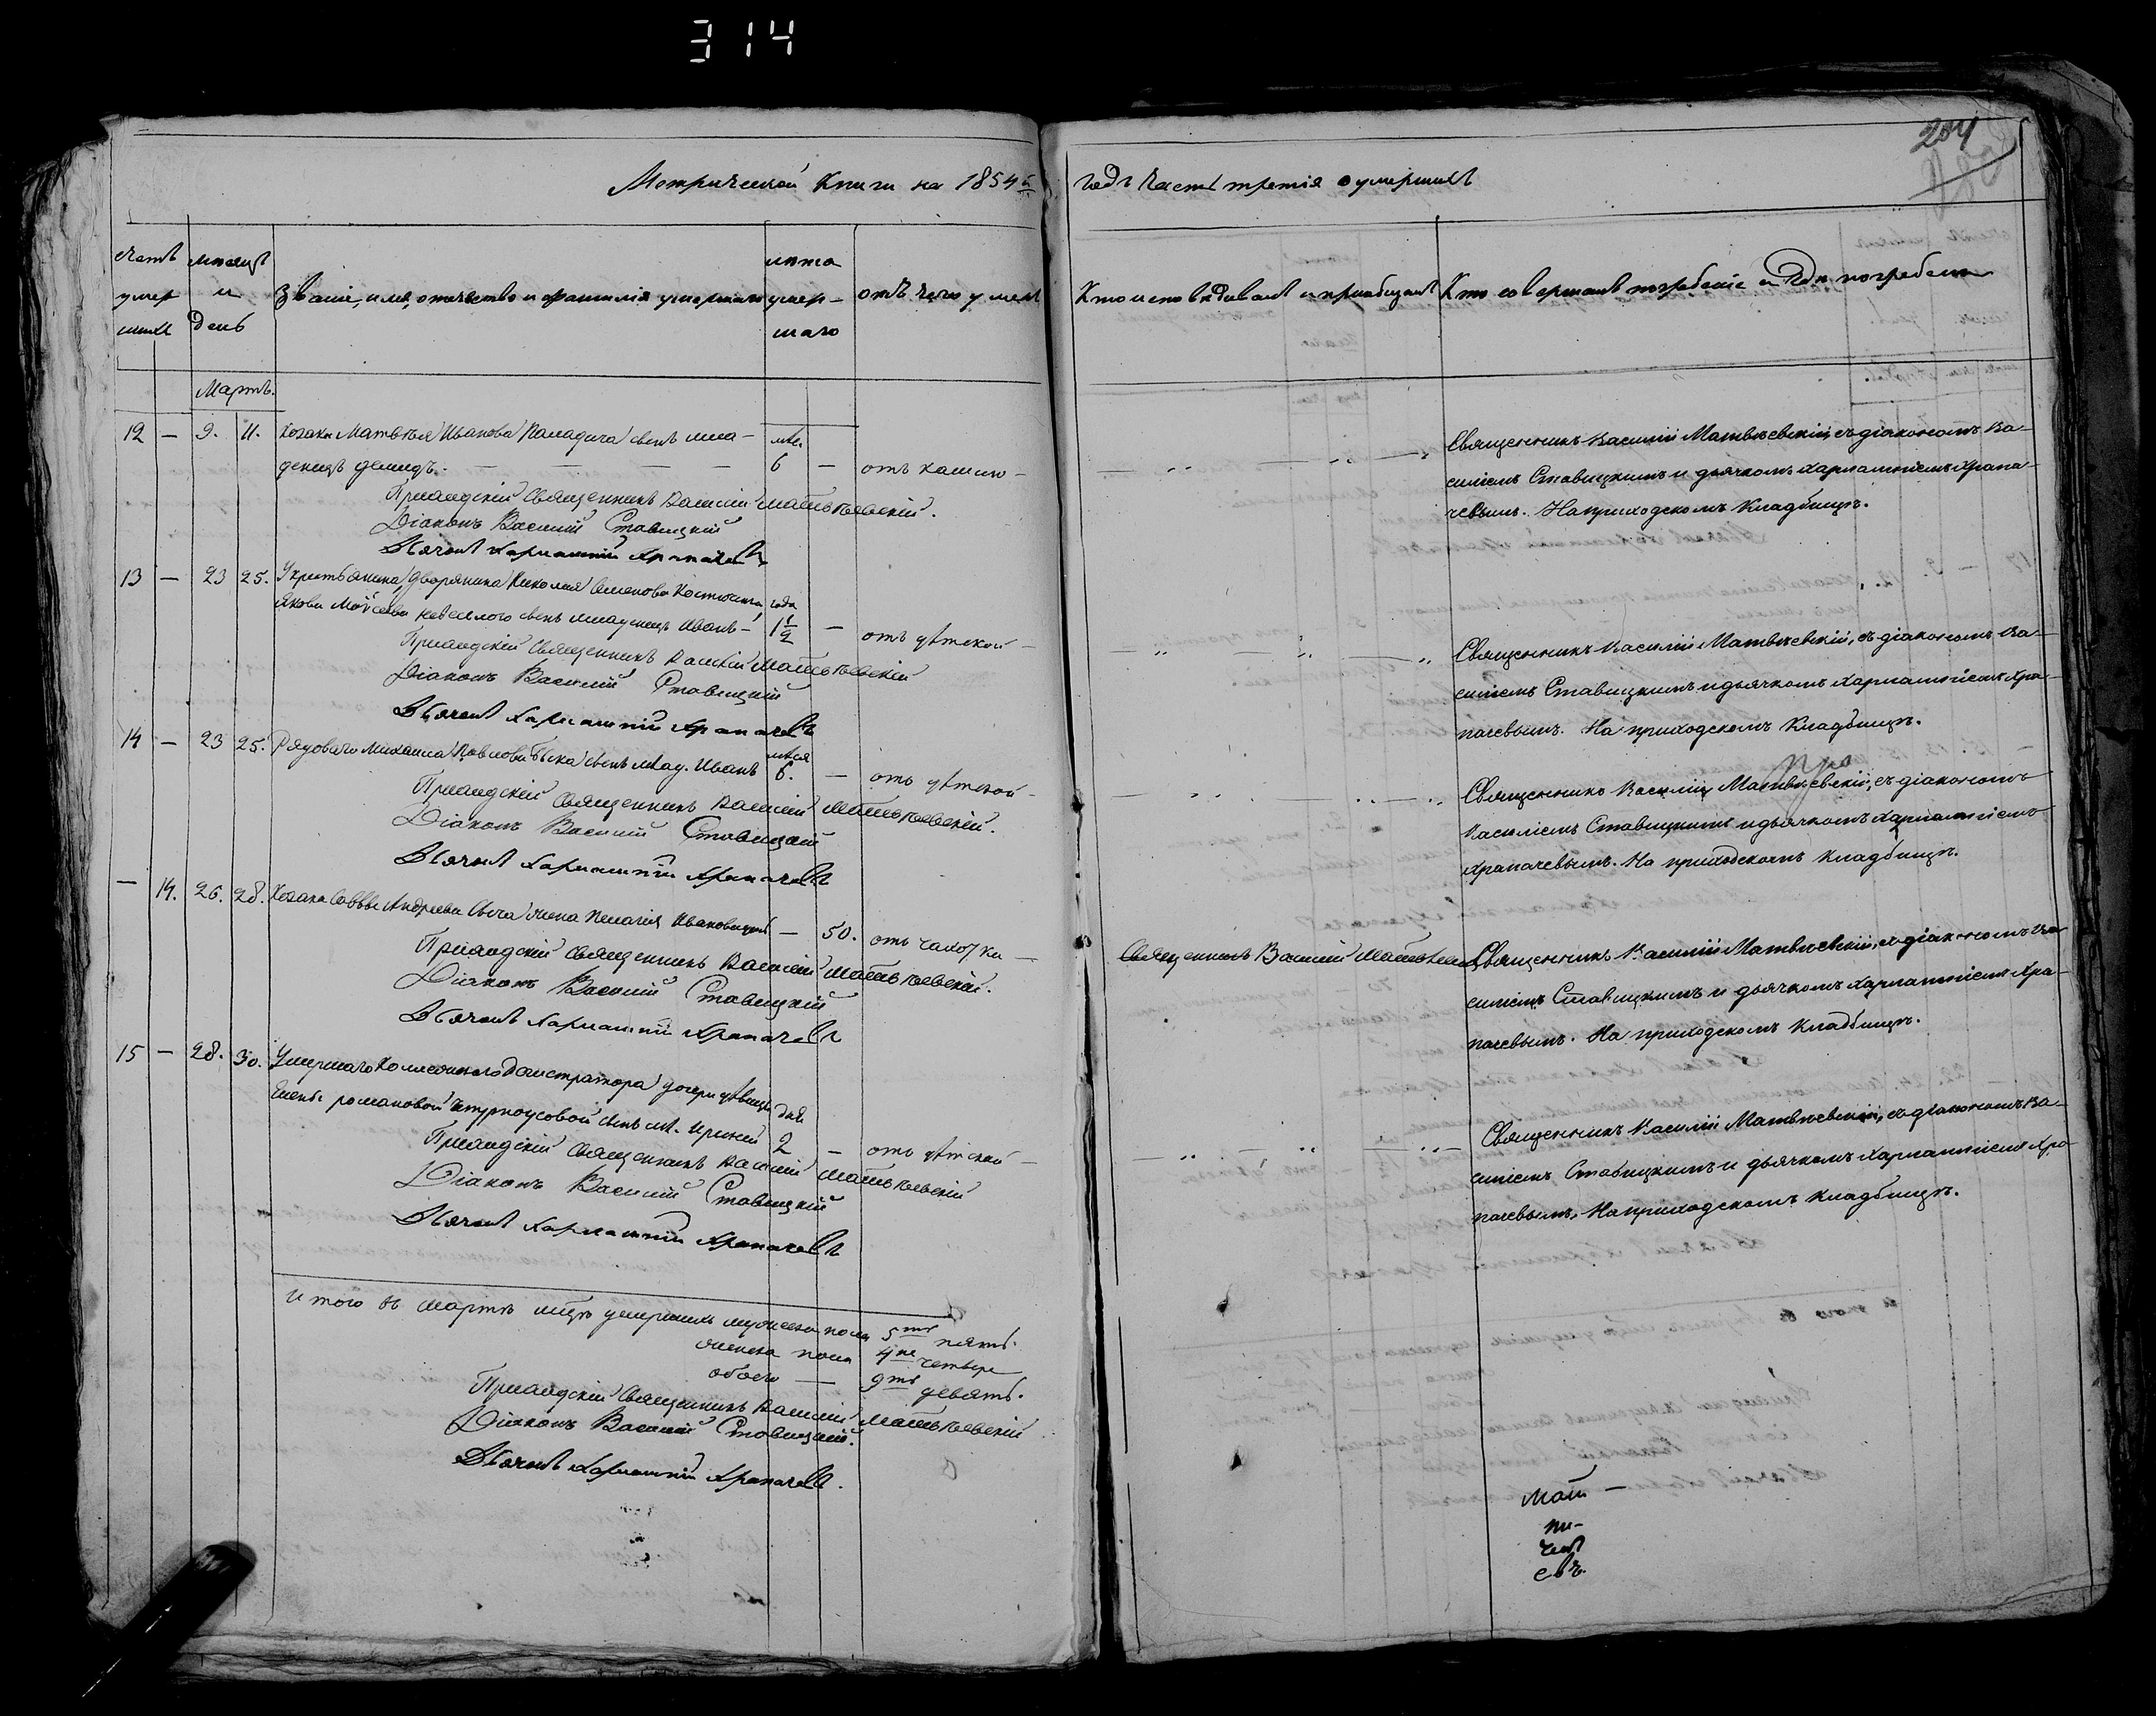 314
204
Метрической Книги на 1854й годъ часть третія о умершихъ
счетъ умер шихъ
мѣсяцъ и день
Званіе, имя, отчество и фамилія умершаго
лѣта умер- шаго
отъ чего умеръ
Кто исповѣдывалъ и пріобщалъ
Кто совершалъ погребеніе и гдѣ погребены
Мартъ.
12 — 9. 11. Козака Матвѣя Иванова сынъ мла-
денецъ Демидъ. — 6 — отъ кашлю —
Приходскій Священникъ Василій Матвѣевскій.
Діаконъ Василій Ставицкій
Дьячокъ Харлампій Храпачевъ
Священникъ Василій Матвѣевскій, съ діакономъ Ва-
силіемъ Ставицкимъ и дьячкомъ Харлампіемъ Храпа-
чевымъ. На приходскомъ кладбищѣ.
13 — 23 25. Дворянина Николая Семенова года
Якова сынъ младенецъ Иванъ — 1 1/2 — отъ дѣтской —
Приходскій Священникъ Василій Матвѣевскій
Діаконъ Василій Ставицкій
Дьячокъ Харлампій Храпачевъ
Священникъ Василій Матвѣевскій, съ діакономъ Ва-
силіемъ Ставицкимъ и дьячкомъ Харлампіемъ Хра-
пачевымъ. На приходскомъ кладбищѣ.
14 — 23 25. Рядового Михаила Павлова сынъ млад. Иванъ 6. — отъ дѣтской —
Приходскій Священникъ Василій Матвѣевскій.
Діаконъ Василій Ставицкій
Дьячокъ Харлампій Храпачевъ
Священникъ Василій Матвѣевскій, съ діакономъ
Василіемъ Ставицкимъ и дьячкомъ Харлампіемъ
Храпачевымъ. На приходскомъ кладбищѣ.
— 14. 26. 28. Козака Саввы Андреева жена Пелагія Иванова — 50. отъ чахотки —
Приходскій Священникъ Василій Матвѣевскій.
Діаконъ Василій Ставицкій
Дьячокъ Харлампій Храпачевъ
Священникъ Василій Матвѣевскій
Священникъ Василій Матвѣевскій, съ діакономъ Ва-
силіемъ Ставицкимъ и дьячкомъ Харлампіемъ Хра-
пачевымъ. На приходскомъ кладбищѣ.
15 — 28. 30. Умершаго дочери дѣвицы дня
Елены Романовой сынъ мл. 2 — отъ дѣтской —
Приходскій Священникъ Василій Матвѣевскій
Діаконъ Василій Ставицкій
Дьячокъ Харлампій Храпачевъ
Священникъ Василій Матвѣевскій, съ діакономъ Ва-
силіемъ Ставицкимъ и дьячкомъ Харлампіемъ Хра-
пачевымъ, На приходскомъ кладбищѣ.
Итого въ мартѣ мцѣ умершихъ мужеска пола 5ть пять.
женска пола 4ре четыре
обоего — 9ть девять.
Приходскій Священникъ Василій Матвѣевскій
Діаконъ Василій Ставицкій.
Дьячокъ Харлампій Храпачевъ.